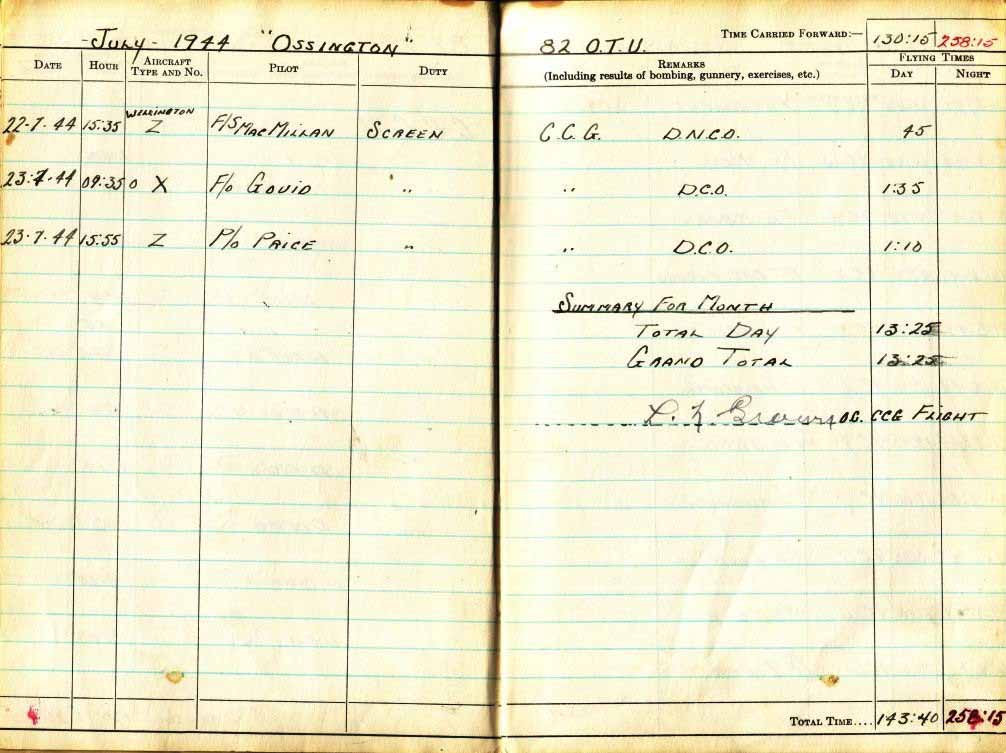 - JULY - 1944 "OSSINGTON"
82 O.T.U. TIME CARRIED FORWARD:— 130:15 258:15
DATE HOUR AIRCRAFT TYPE AND NO. PILOT DUTY REMARKS (Including results of bombing, gunnery, exercises, etc.) FLYING TIMES DAY NIGHT
WELLINGTON
22-7-44 15:35 Z F/S MACMILLAN SCREEN C.C.G. D.N.C.O. 45
23-7-44 09:35 X F/O " " D.C.O. 1:35
23-7-44 15:55 Z P/O PRICE " " D.C.O. 1:10
SUMMARY FOR MONTH
TOTAL DAY 13:25
GRAND TOTAL 13:25
L. F. Brown O.C. CCG FLIGHT
TOTAL TIME.... 143:40 258:15